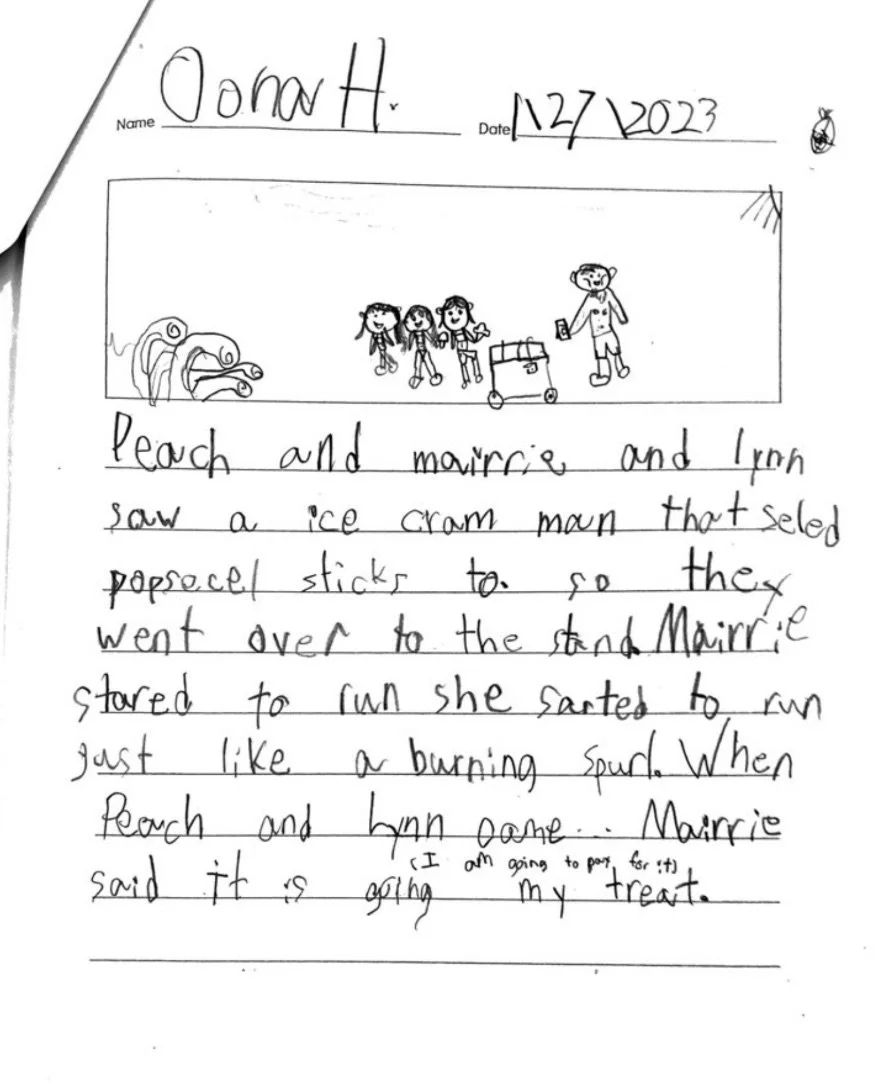 Name Oona H. Date 1\27\2023
Peach and mairrie and lynn
saw a ice cram man that seled
popsocel sticks to. so they
went over to the stand. Mairrie
stared to run she sarted to run
just like a burning spurl. When
Peach and Lynn came... Mairrie
(I am going to pay for it)
said it is going my treat.